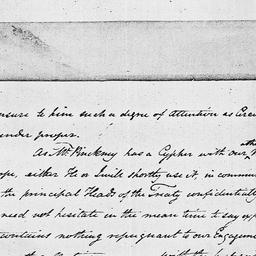 ensure to him such a degree of attention as Circu
under proper.
As Mr. Pinckney has a Cypher with our
othe
ope, either He or I will shortly use it, in commun
the principal Heads of the Treaty confidentially
need not hesitate in the mean time to say exp
contains nothing repugnant to our Engagem